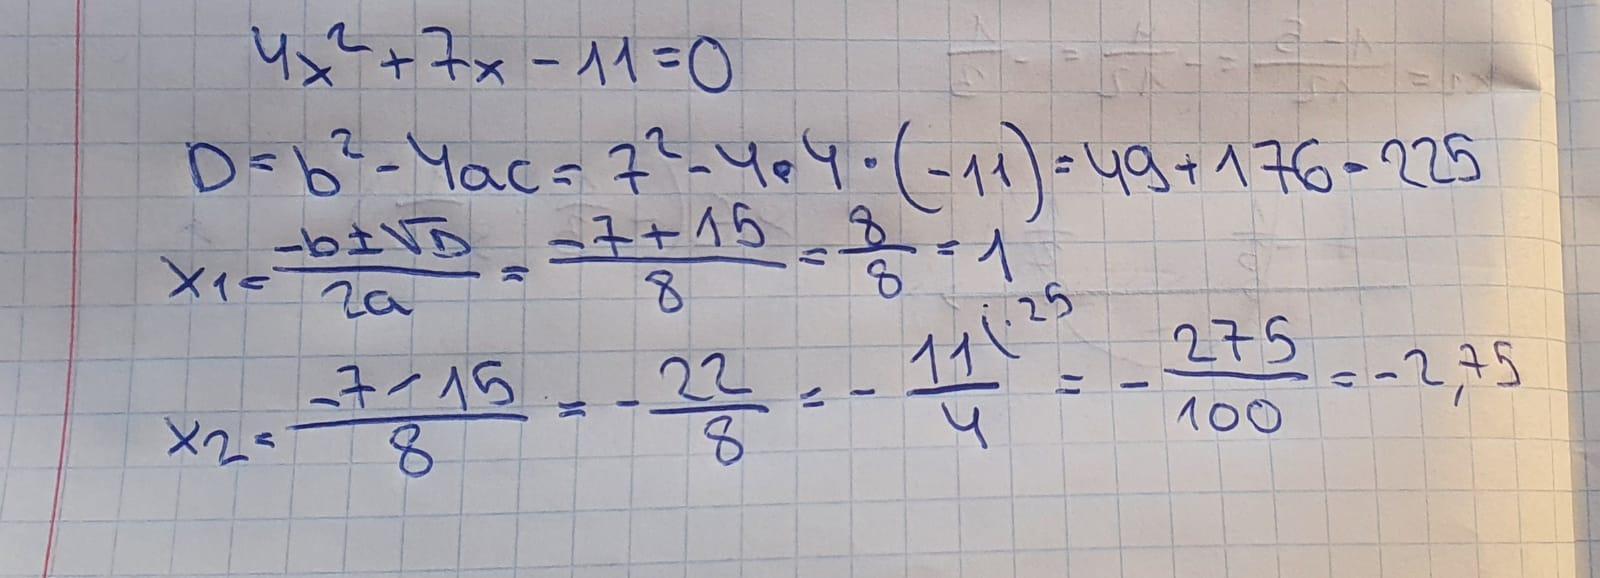 4x² + 7x - 11 = 0
D = b² - 4ac = 7² - 4 • 4 • (-11) = 49 + 176 = 225
x₁ = (-b ± √D)/(2a) = (-7 + 15)/8 = 8/8 = 1
x₂ = (-7 - 15)/8 = - 22/8 = - 11/4 (·25 = - 275/100 = - 2,75